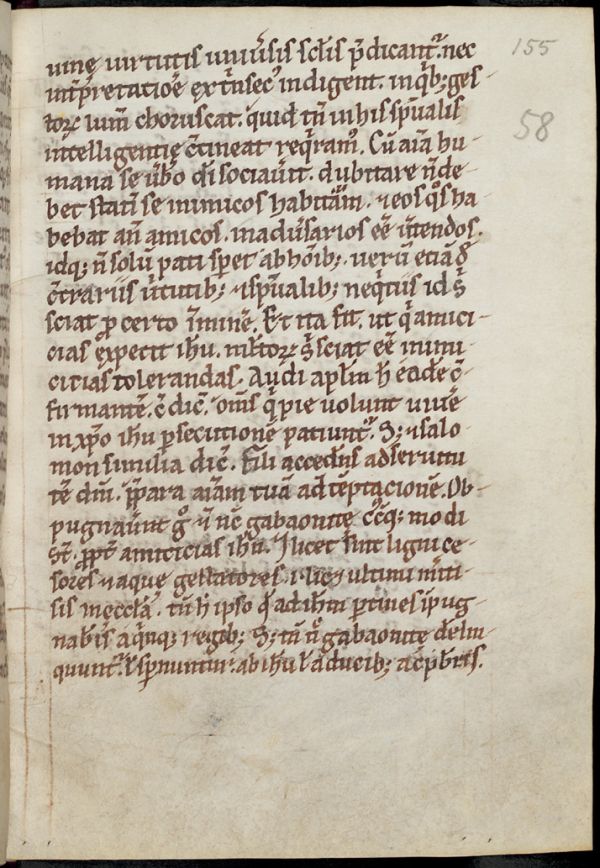 uinę uirtutis uniũsis sclis p̃dicant᷑. nec
int̃pretatiōe ęxt̃nsec᷒ indigent. in q̃b; ges-
toꝝ ium̃ choruscat. quid tñ in his sp̃ualis
intelligentię ꝯtineat req̃ram᷒. Cũ aĩa hu-
mana se ũbo d̃i sociau̾it. dubitare ñ de-
bet statĩ se inimicos habitũam. ⁊ eos q̊s ha
bebat añ amicos. in adũsarios eẽ ũtendos.
idq; ñ solũ pati sp̃et ab hoĩb;. uerũ etiã ꝺ̃
ꝯtrariis ũtutib;. ⁊ sp̃ualib; neq̃tiis id s̃
sciat ꝓ certo im̃inẽ. Et ita fit. ut q̃ amici-
cias ęxpetit ih̃u. ml̃toꝝ s̃ sciat eẽ inimi
citias tolerandas. Audi apl̃m h̾ eadẽ ꝯ-
firmantẽ. c̃ dic̃. Om̃s q̃ pie uolunt uiuẽ
in xp̃o ih̃u p̃secutionẽ patiunt᷑. S; ⁊ salo
mon similia dic̃. Fili accedẽs ad s̃uitu
tẽ dñi. p̃para aĩam tuã ad tẽptacionẽ. Ob-
pugnaũnt g̊ ⁊ nc̃ gabaonitę c̊c̃q; modi
st̃. ꝓpt̃ amicicias ih̃u. Jlicet sint ligni ce-
sores ⁊ aque gestatores. i. lic; ultimi m̾iti
sis in ęccl̃a. tñ h̾ ipso q̃d ad ih̃m p̃tines ĩpug-
nab̾is a q̃nq; regib;. S; tñ ñ gabaonitę delin-
quunt᷑. ł sp̃nuntur. ab ih̃u ł a ducib; a c̃ p̃bris.
155
58